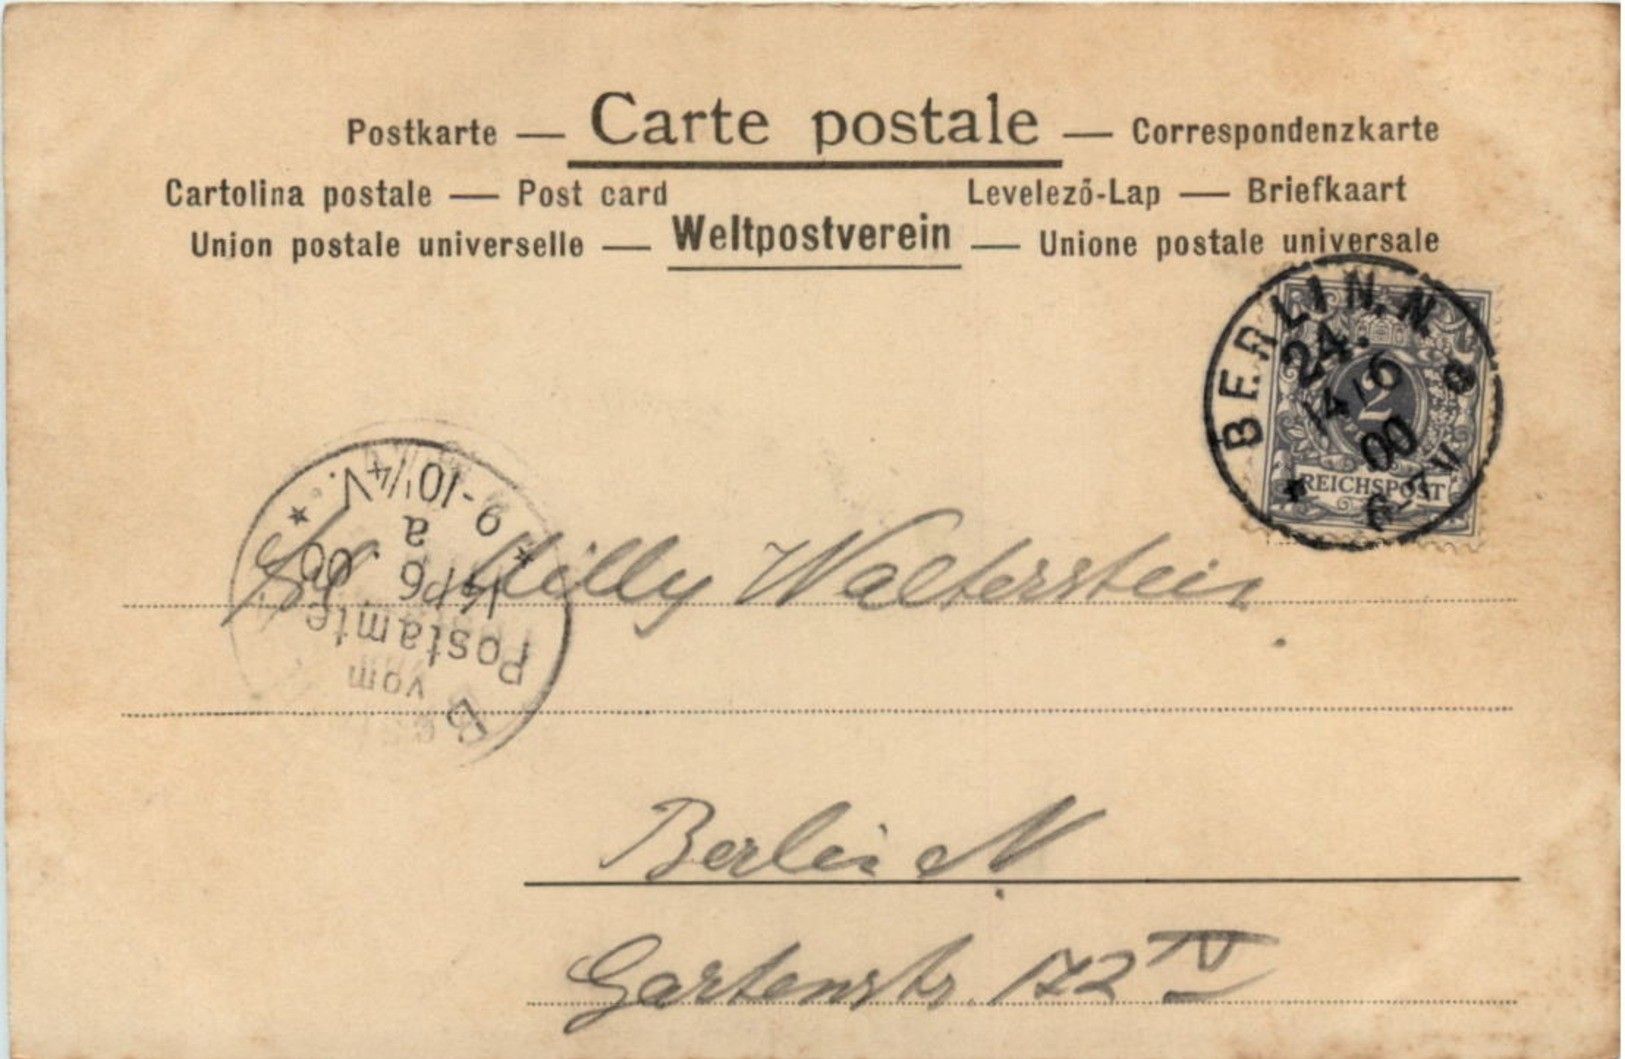 Postkarte — Carte postale — Correspondenzkarte
Cartolina postale — Post card Levelező-Lap — Briefkaart
Union postale universelle — Weltpostverein — Unione postale universale
BERLIN. N.
24.
14/6
00
6-7 V
2
REICHSPOST
9-10¼V.
a
6 00
Postamte
vom
B
Milly Walterstein
Berlin N.
Gartenstr. 172 IV